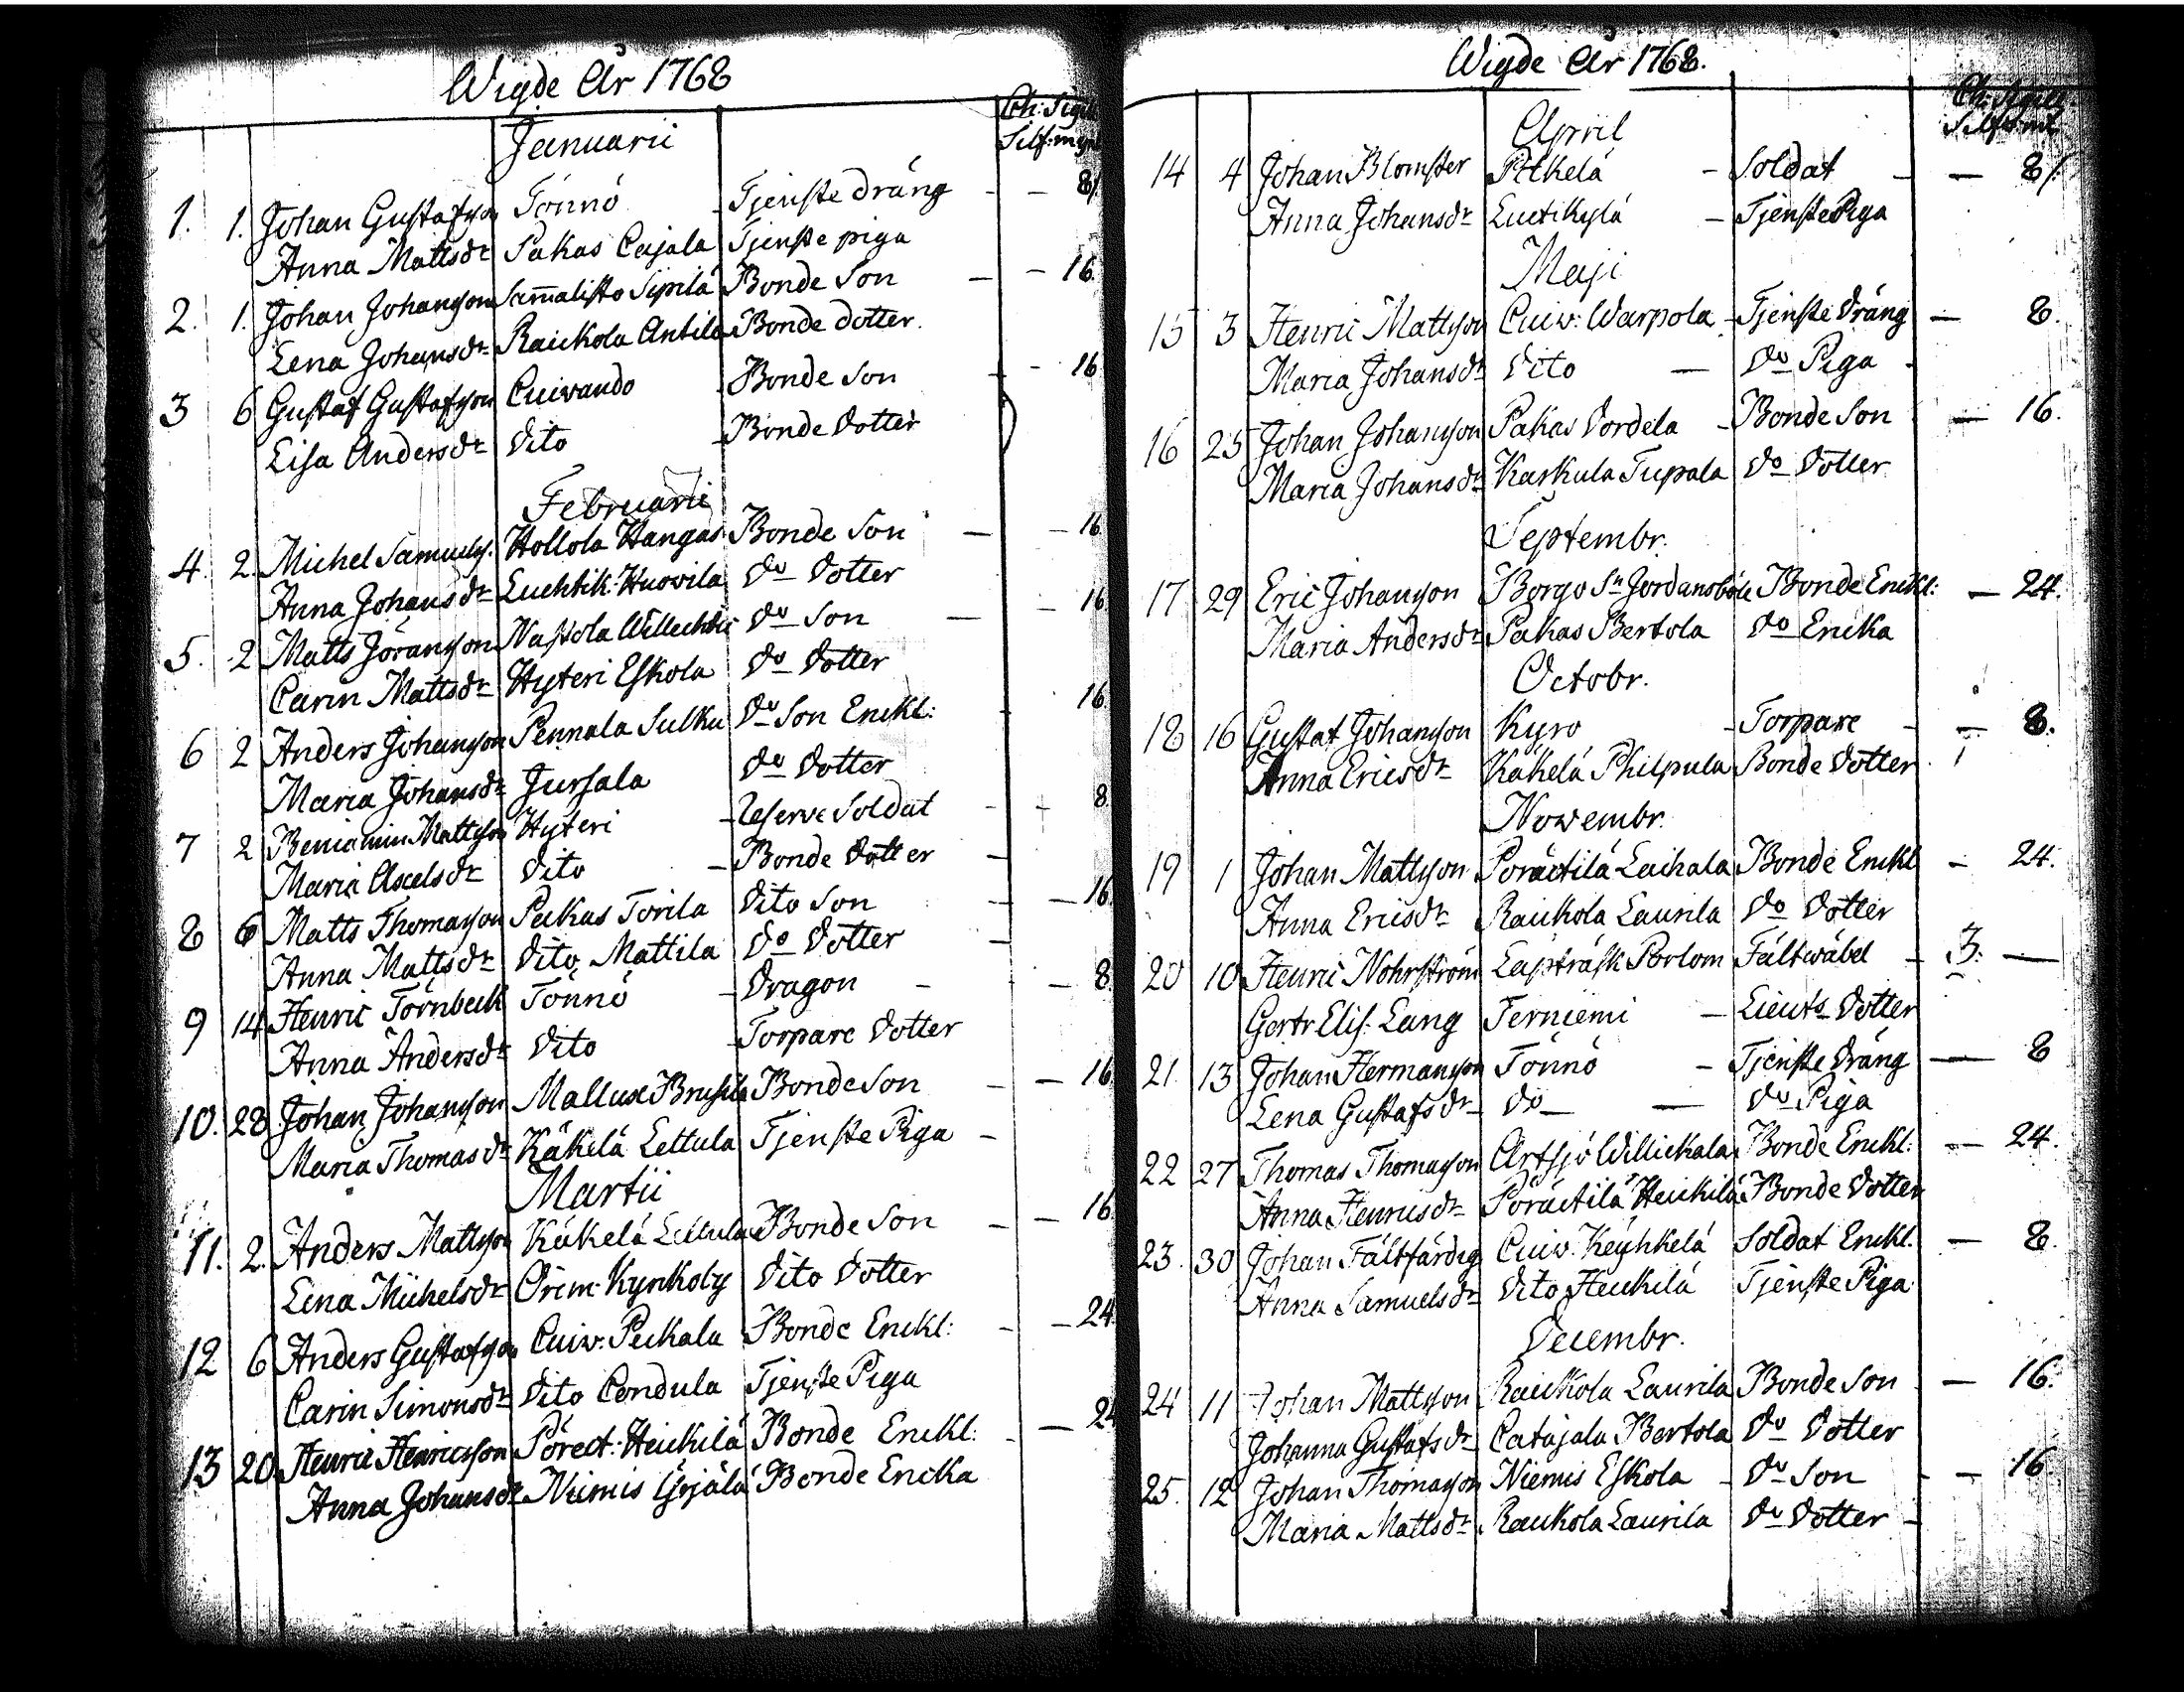 Wigde År 1768
Ch: Sigill
Silf: mynt
Januarii
1. 1. Johan Gustafson Tönnö - Tjenste dräng - - 8/.
Anna Mattsdr Pakas Cajala Tjenste piga
2. 1. Johan Johanson Sam̄alisto Sipilä Bonde Son - - 16.
Lena Johansdr Raickola Antila Bonde dotter.
3 6 Gustaf Gustafson Cuivando - Bonde Son - - 16
Lisa Andersdr Dito - Bonde Dotter
Februarii
4. 2. Michel Samuels. Hollola Hangas Bonde Son - - 16
Anna Johansdr Luchtik. Huovila Do Dotter
5. 2 Matts Göranson Nastola Do Son - - 16
Carin Mattsdr Hyteri Eskola Do Dotter
6 2 Anders Johanson Pennala Sulku Do Son Enckl: - 16
Maria Johansdr Jursala Do Dotter
7 2 Beniamin Mattson Hyteri - Reserve Soldat - - 8
Maria Axelsdr Dito - Bonde Dotter -
8 6 Matts Thomason Pakas Torila Dito Son - - 16
Anna Mattsdr Dito Mattila Do Dotter -
9 14 Henric Törnbeck Tönnö - Dragon - - 8
Anna Andersdr Dito - Torpare Dotter
10. 28 Johan Johanson Mallusx Brusila Bonde Son - - 16
Maria Thomasdr Käkelä Lettula Tjenste Piga -
Martii
11. 2. Anders Mattson Käkelä Lettula Bonde Son - - 16
Lena Michelsdr Orim. Kynkoby Dito Dotter
12 6 Anders Gustafson Cuiv. Peckala Bonde Enckl: - - 24
Carin Simonsdr Dito Condula Tjenste Piga
13 20 Henric Henricsson Pörect: Heickilä Bonde Enckl: - - 24
Anna Johansdr Niemis Bonde Encka
Wigde År 1768.
Ch: Sigill
Silf: mt
April
14 4 Johan Blomster Pitkelä - Soldat - - 8/.
Anna Johansdr Luctikylä - Tjenste Piga
Maji
15 3 Henric Mattson Cuiv: Warpola - Tjenste Dräng - 8.
Maria Johansdr Dito - Do Piga -
16 25 Johan Johanson Pakas Dordela - Bonde Son - 16.
Maria Johansdr Karkula Tupala Do Dotter
Septembr.
17 29 Eric Johanson Borgo Sn Jordansböle Bonde Enckl: - 24.
Maria Andersdr Pakas Bertola Do Encka
Octobr.
18 16 Gustaf Johanson Kyro - Torpare - - 8.
Anna Ericsdr Käkelä Philpula Bonde Dotter
Novembr.
19 1 Johan Mattson Poräctilä Laihala Bonde Enckl - 24.
Anna Ericsdr Raickola Laurila Do Dotter
20 10 Henric Nohrström Lapträsk Porlom Fältwäbel - 3. -
Gertr Elis: Lang Terniemi - Lieuts Dotter
21. 13 Johan Hermanson Tönnö - Tjenste Dräng - 8
Lena Gustafsdr Do - Do Piga
22 27 Thomas Thomason Artsjö Willickala Bonde Enckl: - 24.
Anna Henricsdr Poräctilä Heickilä Bonde Dotter
23. 30 Johan Fältfärdig Cuiv. Keyhkelä Soldat Enckl. - 8.
Anna Samuelsdr Dito Heickilä Tjenste Piga
Decembr.
24 11 Johan Mattson Raickola Laurila Bonde Son - 16.
Johanna Gustafsdr Catajala Bertola Do Dotter
25. 12 Johan Thomason Niemis Eskola - Do Son - - 16
Maria Mattsdr Raickola Laurila Do Dotter -